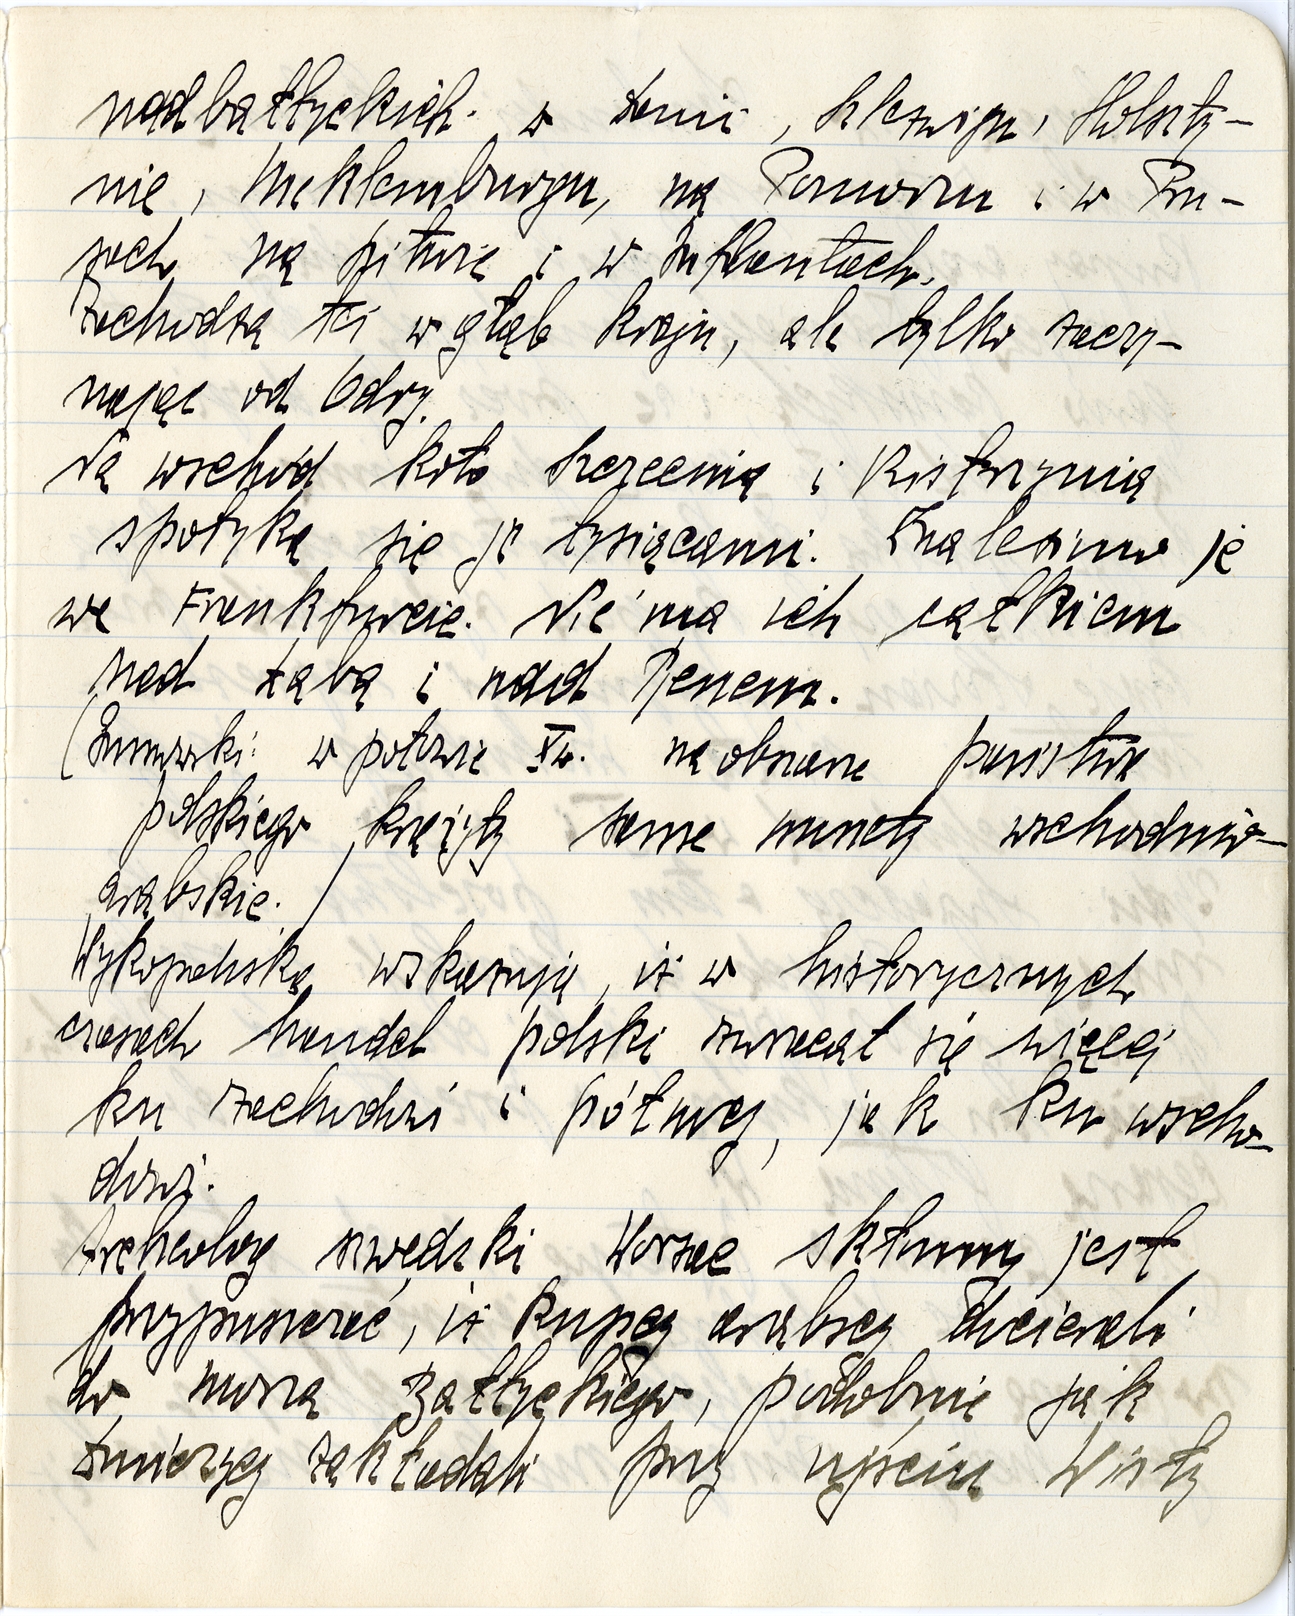 nadbałtyckich. w Danii, Szlezwigu, Holszty-
nie, Meklemburgu, na Pomorzu i w Pru-
sach, na Litwie i w Inflantach.
Zachodzą też w głąb kraju, ale tylko zaczy-
nając od Odry.
Na wschód koło Szczecina i Kistrzynia
spotyka się je tysiącami. Znalezimo je
we Frankfurcie. Nie ma ich całkiem
nad Łabą i nad Renem.
w połowie Xw. na obszarze państwa
polskiego krążyły same monety wschodnio-
arabskie.)
Wykopaliska wskazują, iż w historycznych
czasach handel polski zwracał się więcej
ku zachodzi i północy, jak ku wscho-
dowi.
Archeolog szwedzki Worsae skłonny jest
przypuszczać, iż kupcy arabscy docierali
do morza Bałtyckiego, podobnie jak
Duńczycy zakładali przy ujściu Wisły